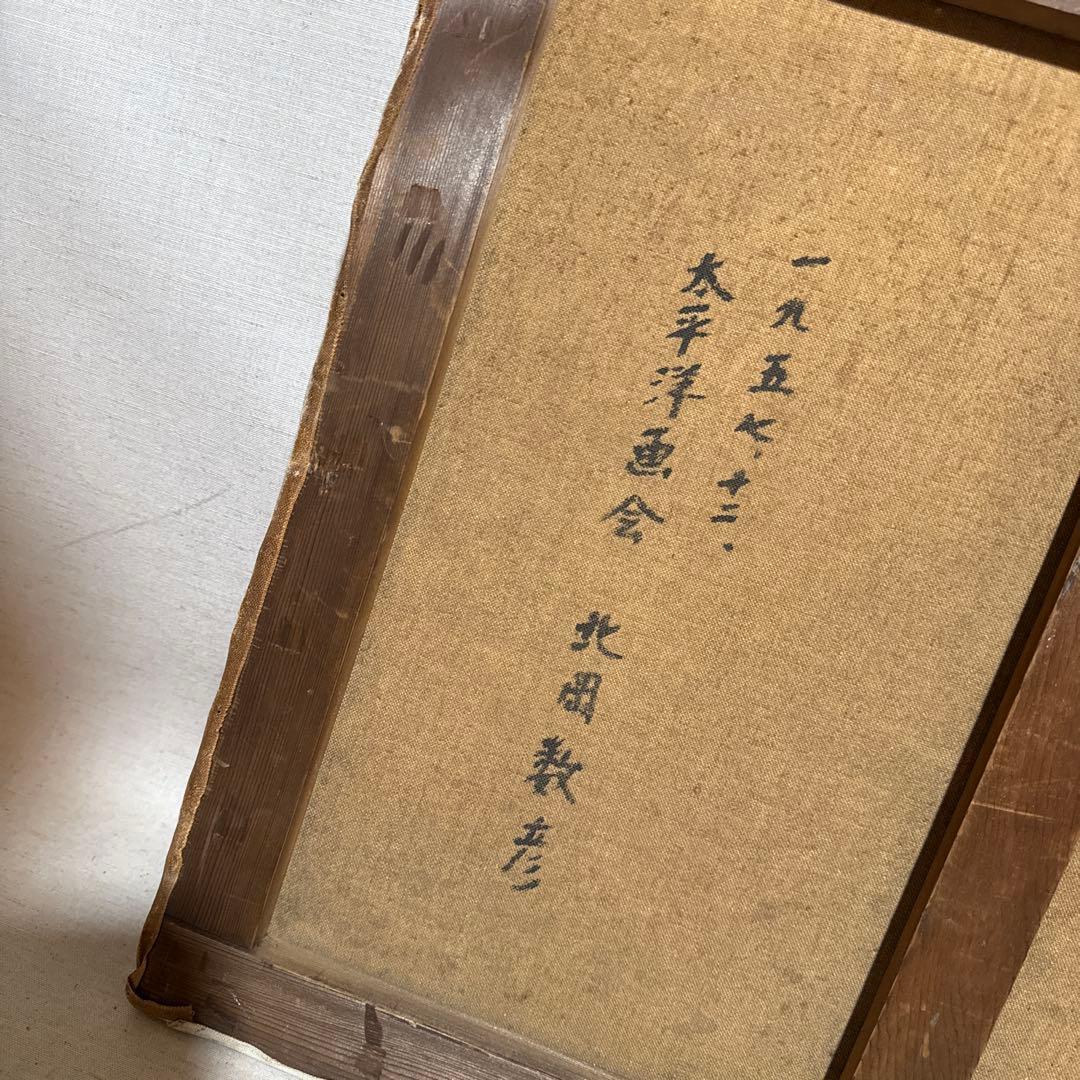 一九五七、十二.
太平洋画会 北岡数彦